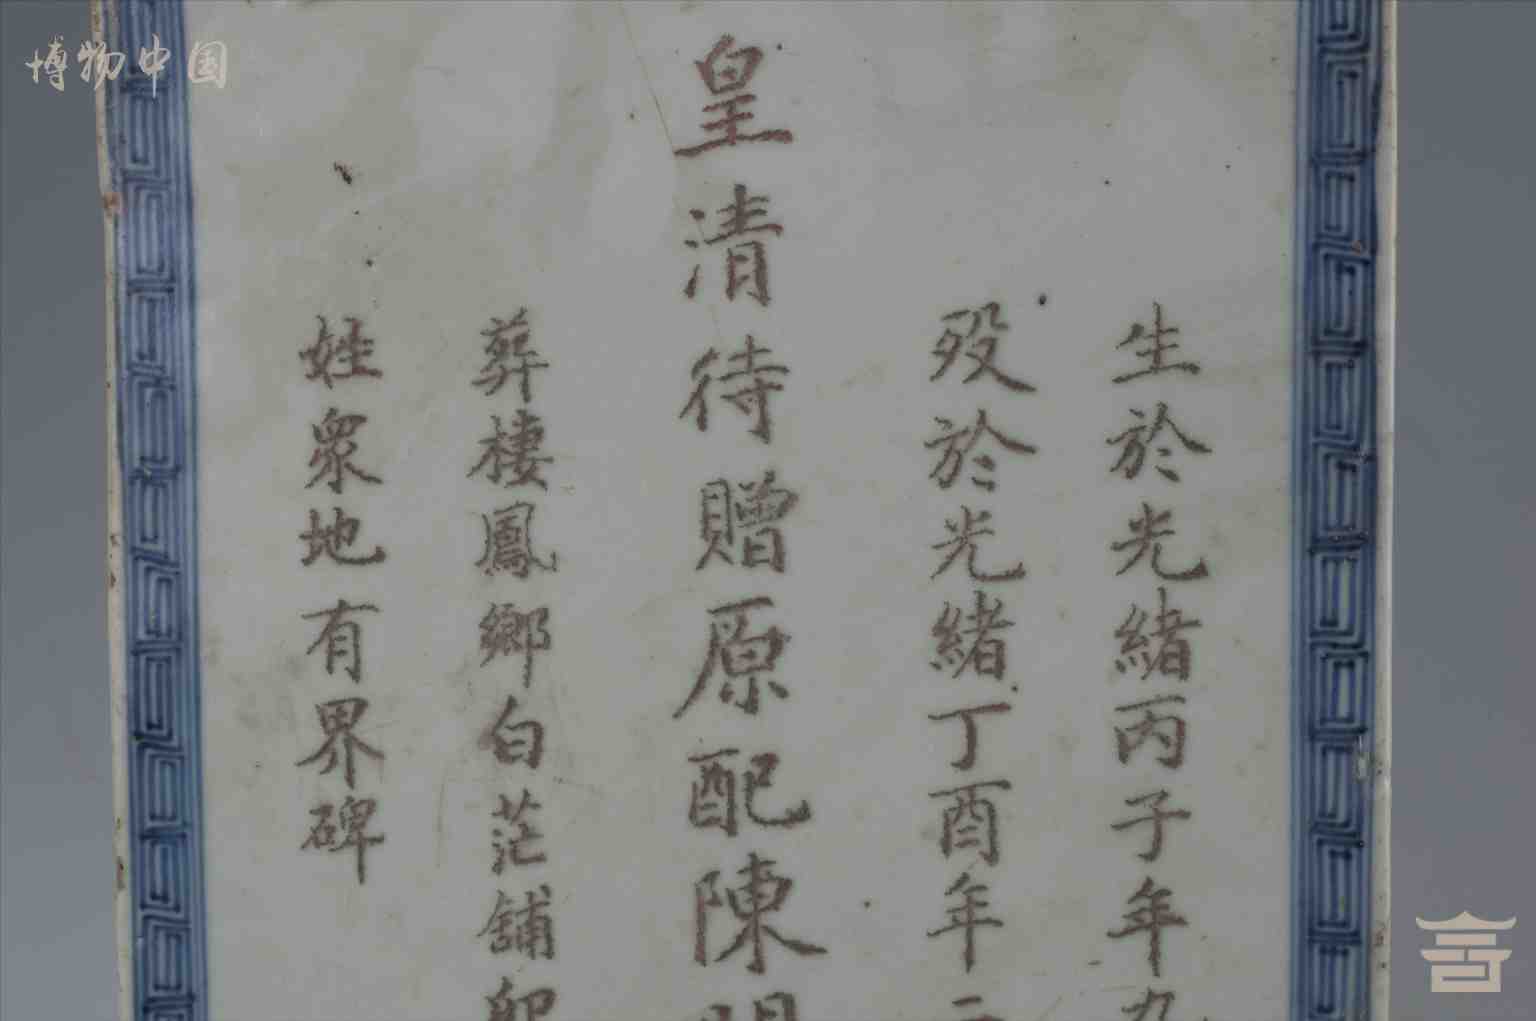 博物中国
生於光緒丙子年九
歿於光緒丁酉年二
皇清待贈原配陳
葬棲鳳鄉白茫舖
姓衆地有界碑